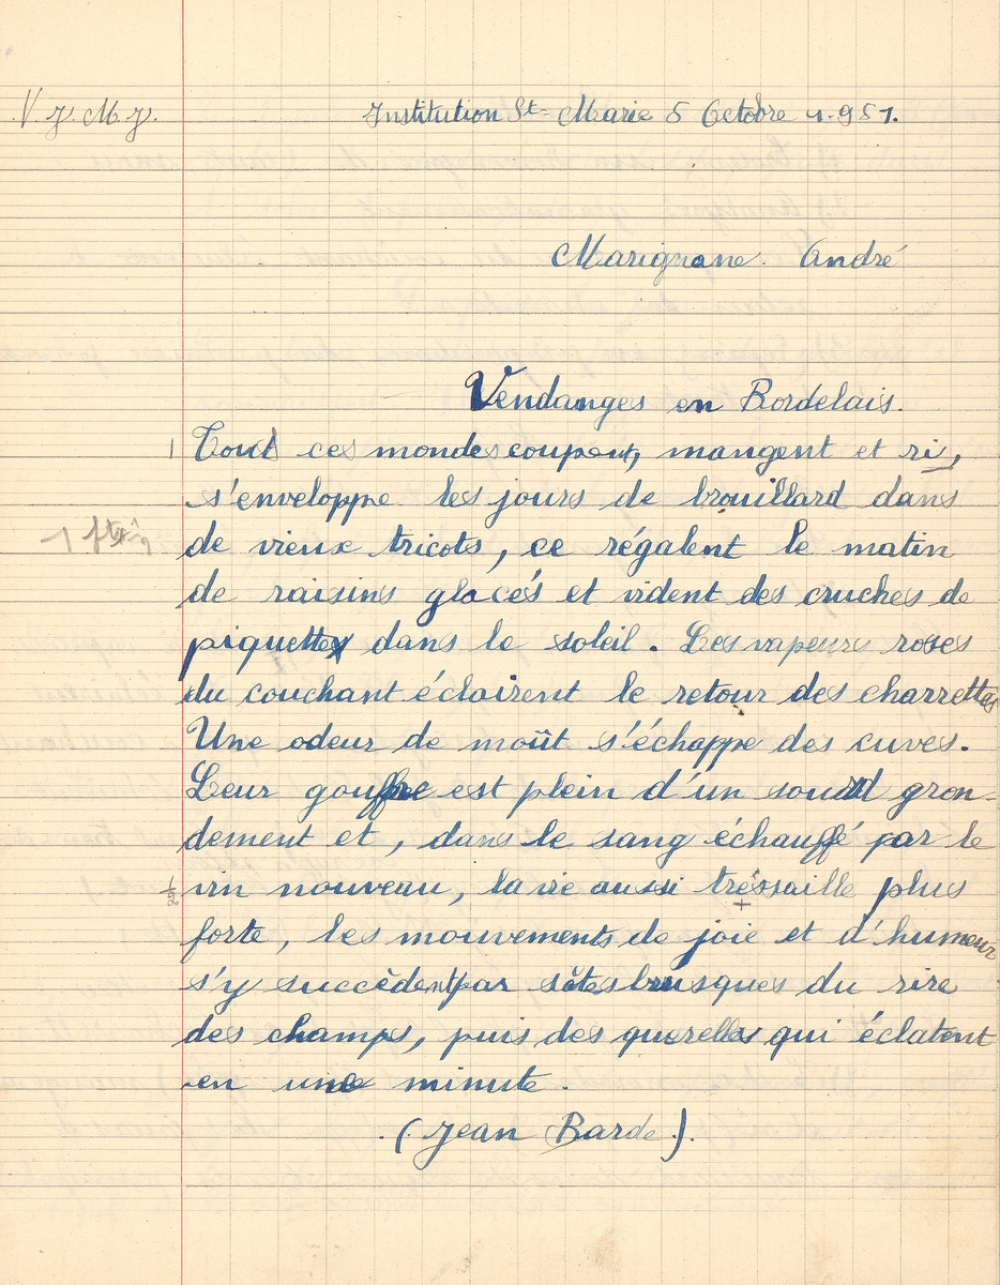 V. J. M. J.
Institution St-Marie 5 Octobre 1951.
Marignane André
Vendanges en Bordelais.
1 Tout ces mondes coupent, mangent et ri,
s'enveloppe les jours de brouillard dans
de vieux tricots, ce régalent le matin
de raisins glacés et vident des cruches de
piquette dans le soleil. Les vapeurs roses
du couchant éclairent le retour des charrettes
Une odeur de moût s'échappe des cuves.
Leur gouffre est plein d'un sourd gron-
dement et, dans le sang échauffé par le
½ vin nouveau, la vie aussi tréssaille plus
forte, les mouvements de joie et d'humeur
s'y succèdent par sâtes brusques du rire
des champs, puis des querelles qui éclatent
en une minute.
(Jean Barde).